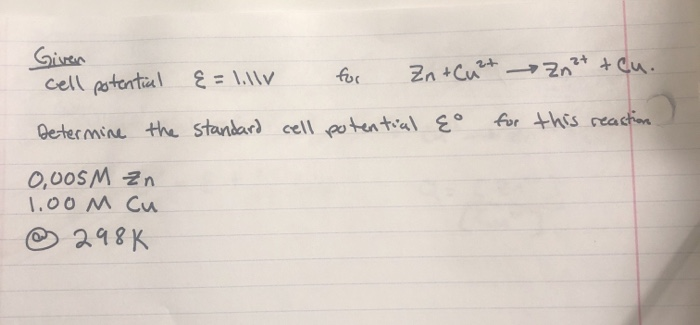 Given
cell potential ε = 1.11v for Zn + Cu²⁺ → Zn²⁺ + Cu.
Determine the standard cell potential ε° for this reaction
0,005M Zn
1.00 M Cu
@ 298K